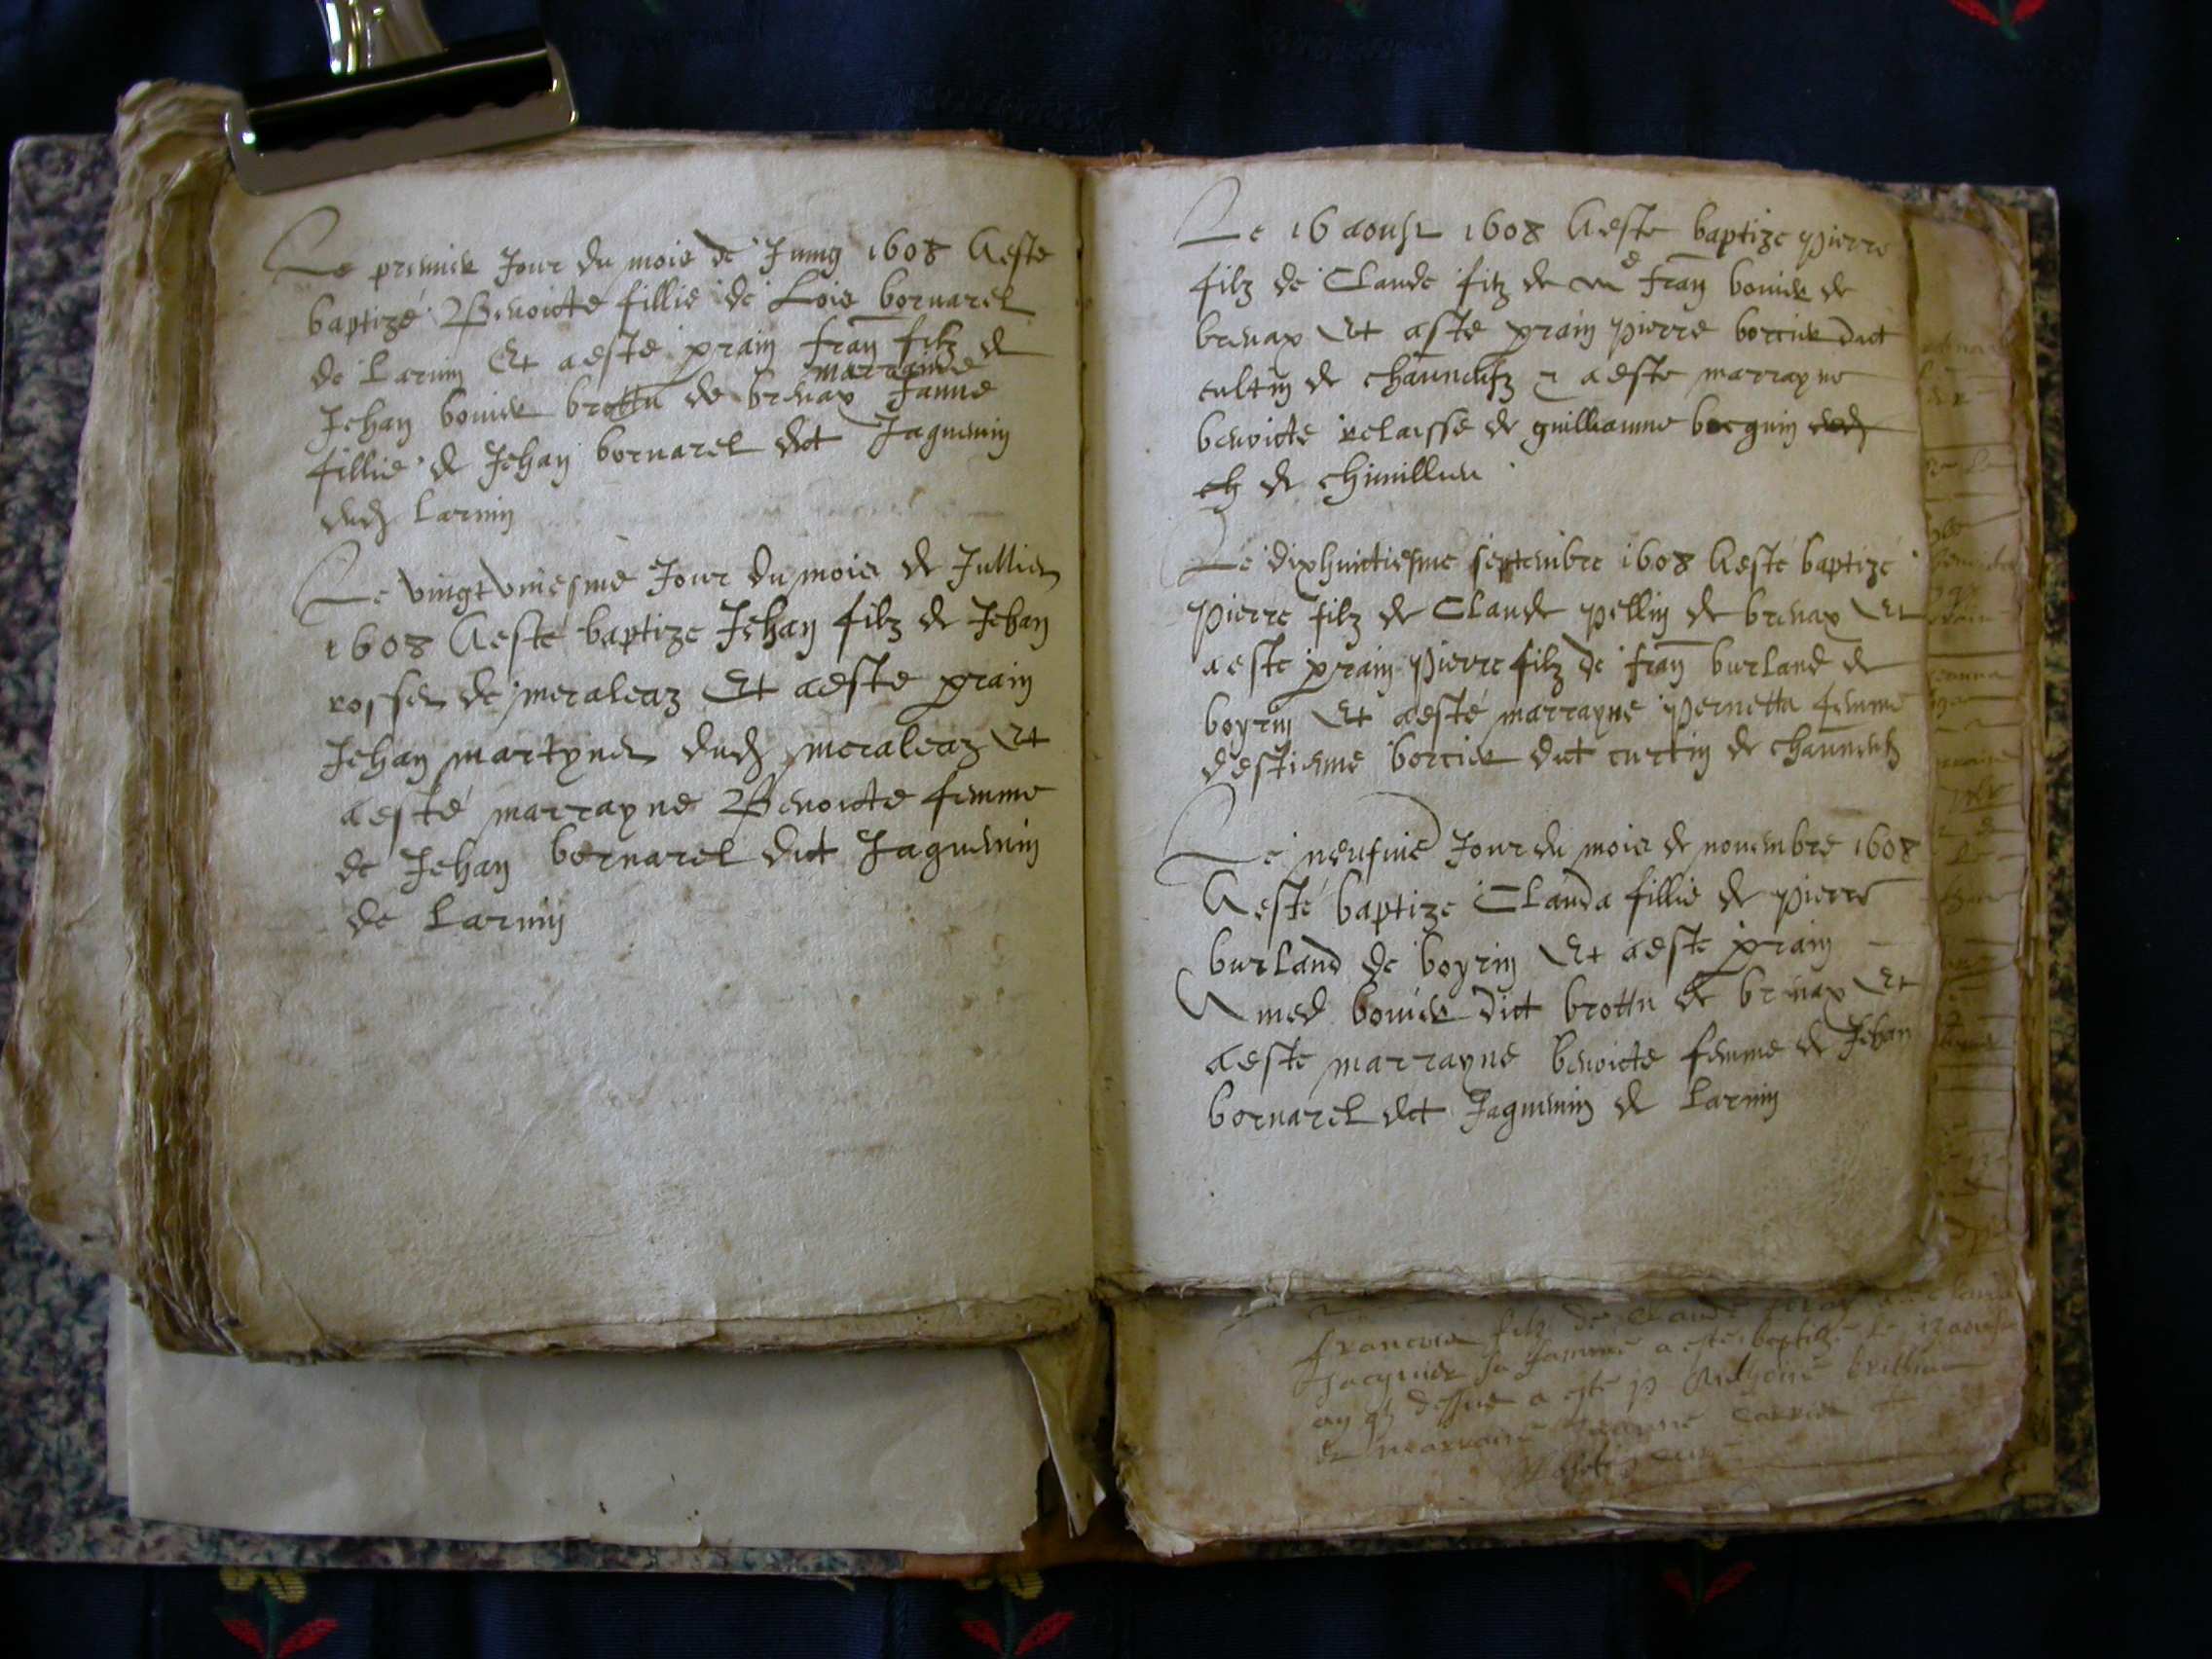 Le premier Jour du mois de Juing 1608 A este
baptizé Benoicte fillie de Lois bornarel
de Larnin Et a este prain fran filz de
Jehan bouier brottu de brenax marraine Janne
fillie de Jehan bornarel dict Jaguemin
dud Larnin
Le vingtuniesme Jour du mois de Jullier
1608 A esté baptize Jehan filz de Jehan
rosser de meraleaz Et a este prain
Jehan martyner dud meraleaz Et
a esté marrayne Benoicte femme
de Jehan bornarel dict Jaguemin
de Larnin
Le 16 aoust 1608 A este baptize pierre
filz de Claude fitz de me fran bouier de
brenax Et a sté prain pierre borcier dict
cultin de chauneufz a este marrayne
benoicte relaisse de guilliaume bocquin
de chimillieu
Le dixhuictiesme septembre 1608 A esté baptize
pierre filz de Claude pellin de brenax Et
a este prain pierre filz de fran burland de
boyrin Et a esté marrayne pernetta femme
d'estienne borcier dict curtin de chauneufz
Le neufuie Jour du mois de nouembre 1608
A esté baptize Clauda fillie de pierre
burland de boyrin Et a este prain
Amed bouier dict brottu de brenax Et
a este marrayne benoicte femme de Jehan
bornarel dict Jaguemin de Larnin
francois filz de claude
Jacquier sa famme a este baptizé le 12 aoust
dessus a este p Anthoine
et marraine Jeanne